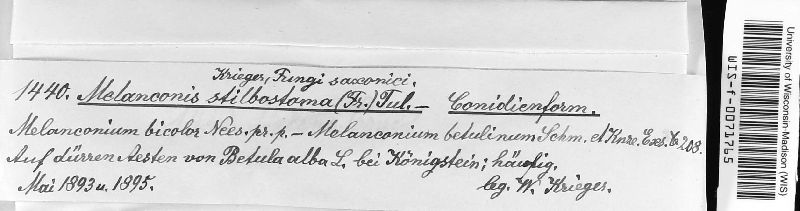 Krieger, Fungi saxonici.
1440. Melanconis stilbostoma (Fr.) Tul. – Conidienform.
Melanconium bicolor Nees. pr. p. – Melanconium betulinum Schm. et Knze. Exs. No 208.
Auf dürren Aesten von Betula alba L. bei Königstein; häufig.
Mai 1893 u. 1895.
leg. W. Krieger.
University of Wisconsin-Madison (WIS)
WIS-f-0071765